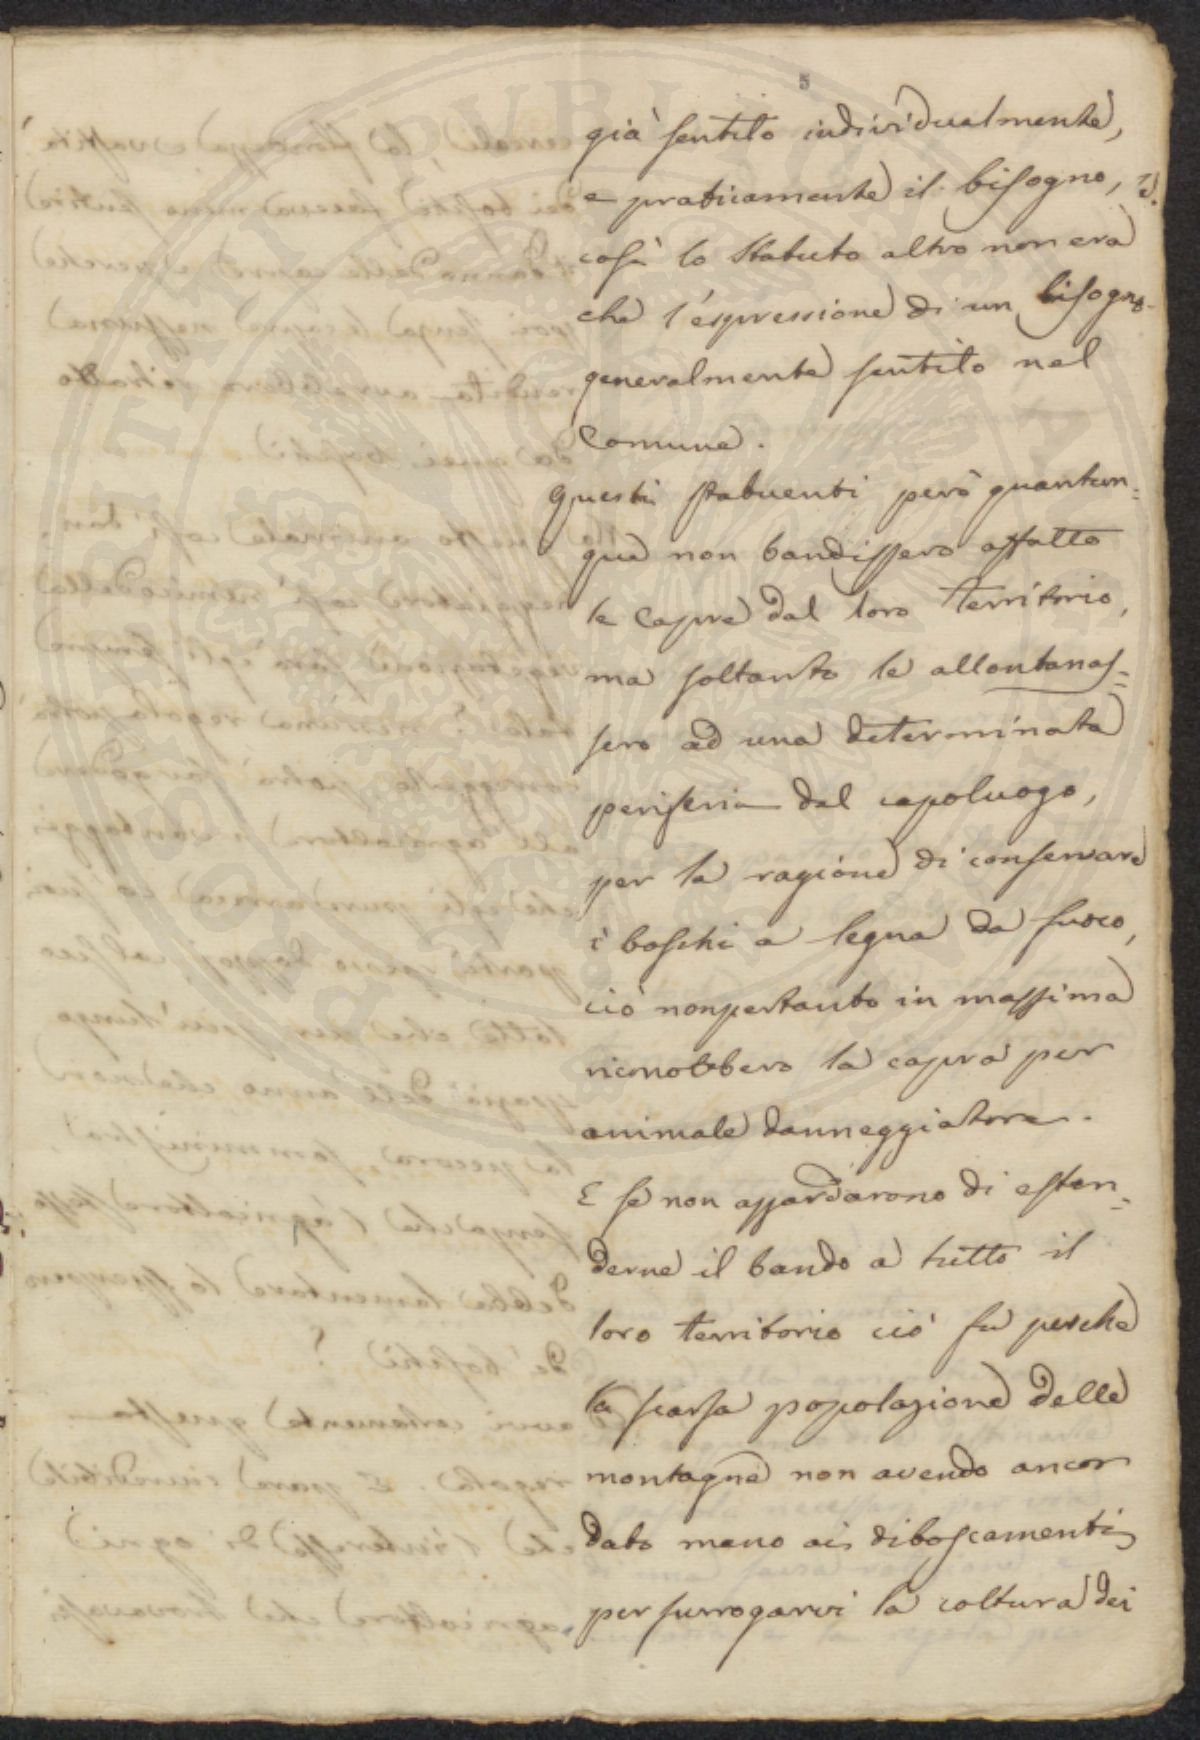 5
già sentito individualmente,
e praticamente il bisogno, e
così lo Statuto altro non era
che l'espressione di un bisogno
generalmente sentito nel
Comune.
Questi statuenti però quantun=
que non bandissero affatto
le Capre dal loro territorio,
ma soltanto le allontanas=
sero ad una determinata
periferia dal capoluogo,
per la ragione di conservare
i boschi a legna da fuoco,
ciò nonpertanto in massima
riconobbero la capra per
animale danneggiatore.
E se non azzardarono di esten=
derne il bando a tutto il
loro territorio ciò fu perche
la scarsa popolazione delle
montagne non avendo ancor
dato mano ai diboscamenti
per surrogarvi la coltura dei